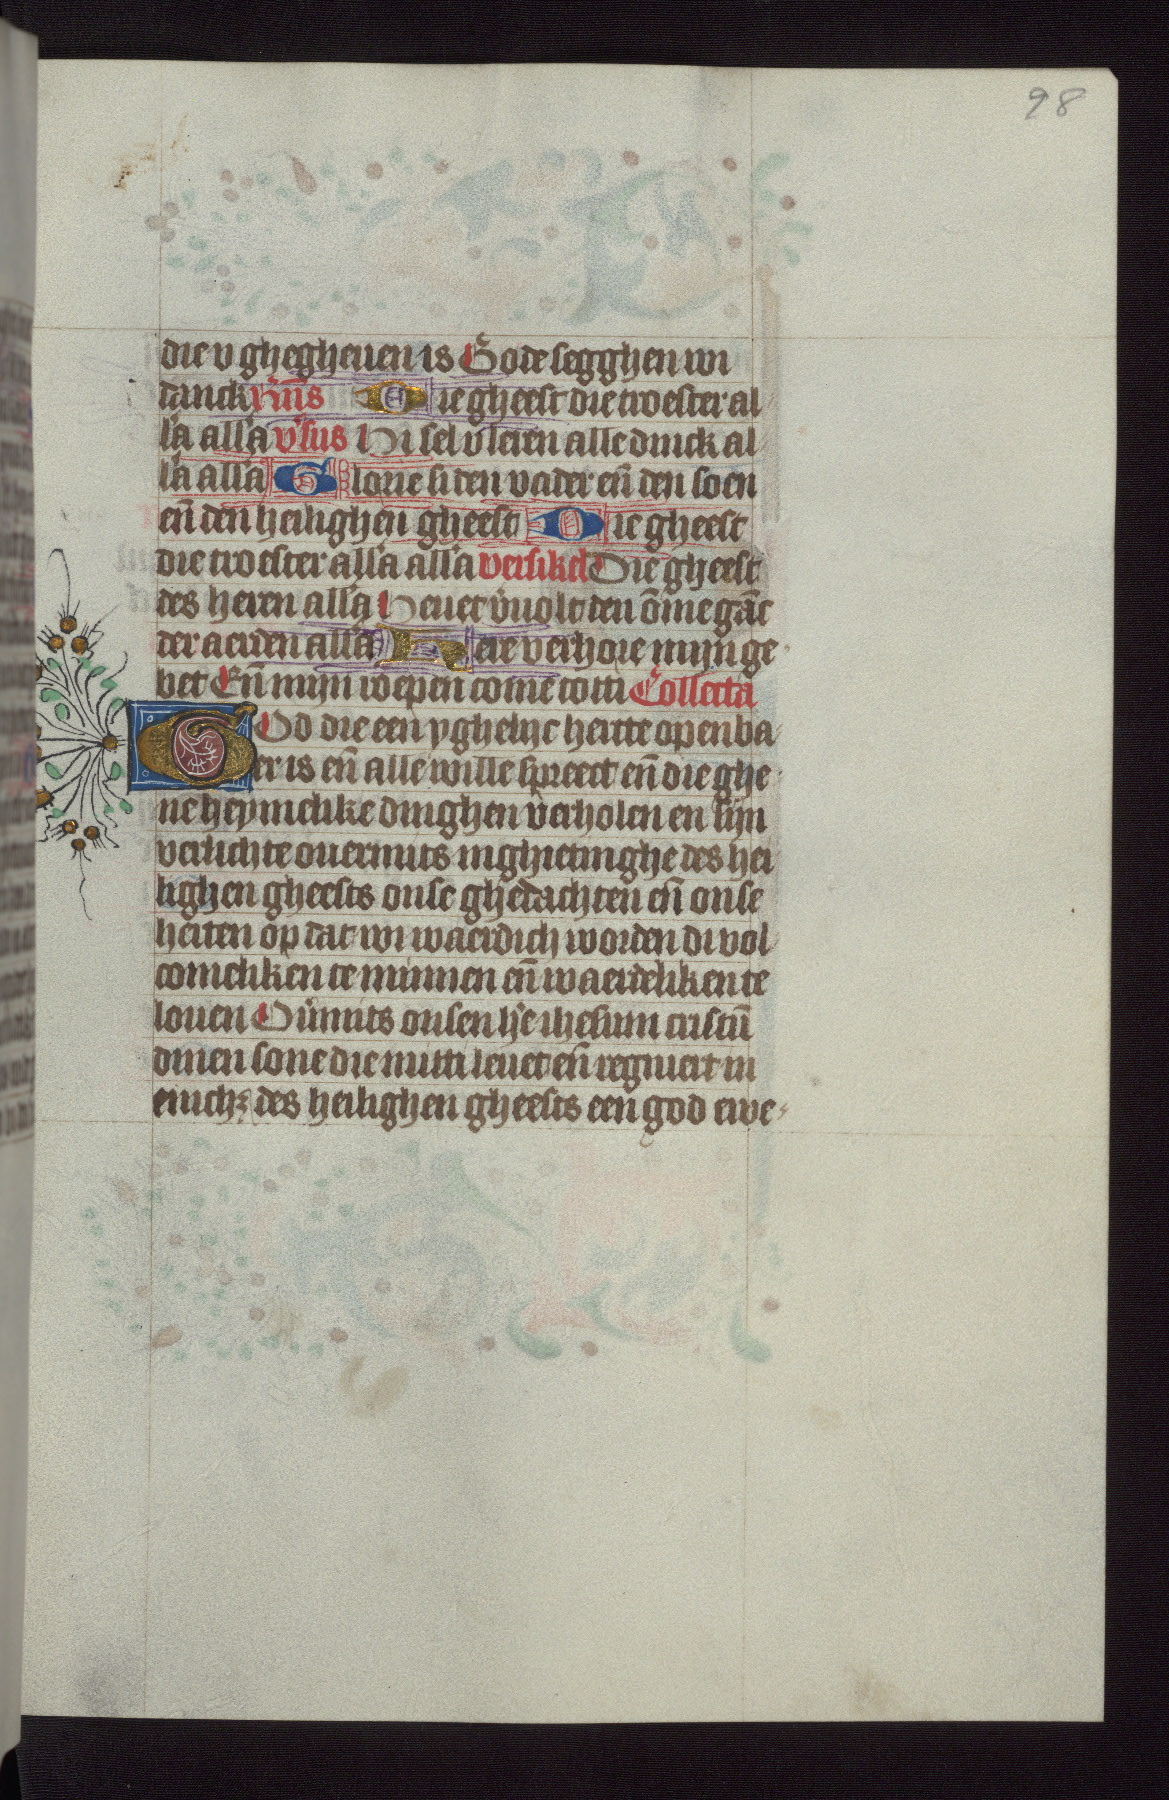 98
die v ghegheuen is Gode segghen wi
danck Rn̄s Die gheest die troester al
l'a all'a v'sus Hi sel v leren alle dinck al
l'a all'a Glorie si den vader en̄ den soen
en̄ den heilighen gheest Die gheest
die troester all'a all'a versikel Die gheest
des heren all'a Heuet v'uolt den ōmegāc
der aerden all'a Here verhore mijn ge
bet En̄ mijn roepen come totti Collecta
God die een yghelijc hertte openba
er is en̄ alle wille spreect en̄ die ghe
ne heymelike dinghen verholen en sijn
verlichte ouermits inghietinghe des hei
lighen gheests onse ghedachten en̄ onse
herten op dat wi waerdich worden di vol
comeliken te minnen en̄ waerdeliken te
louen Ou'mits onsen h'e ihesum cristū
dinen sone die mitti leuet en̄ regniert in
enich3 des heilighen gheests een god ewe